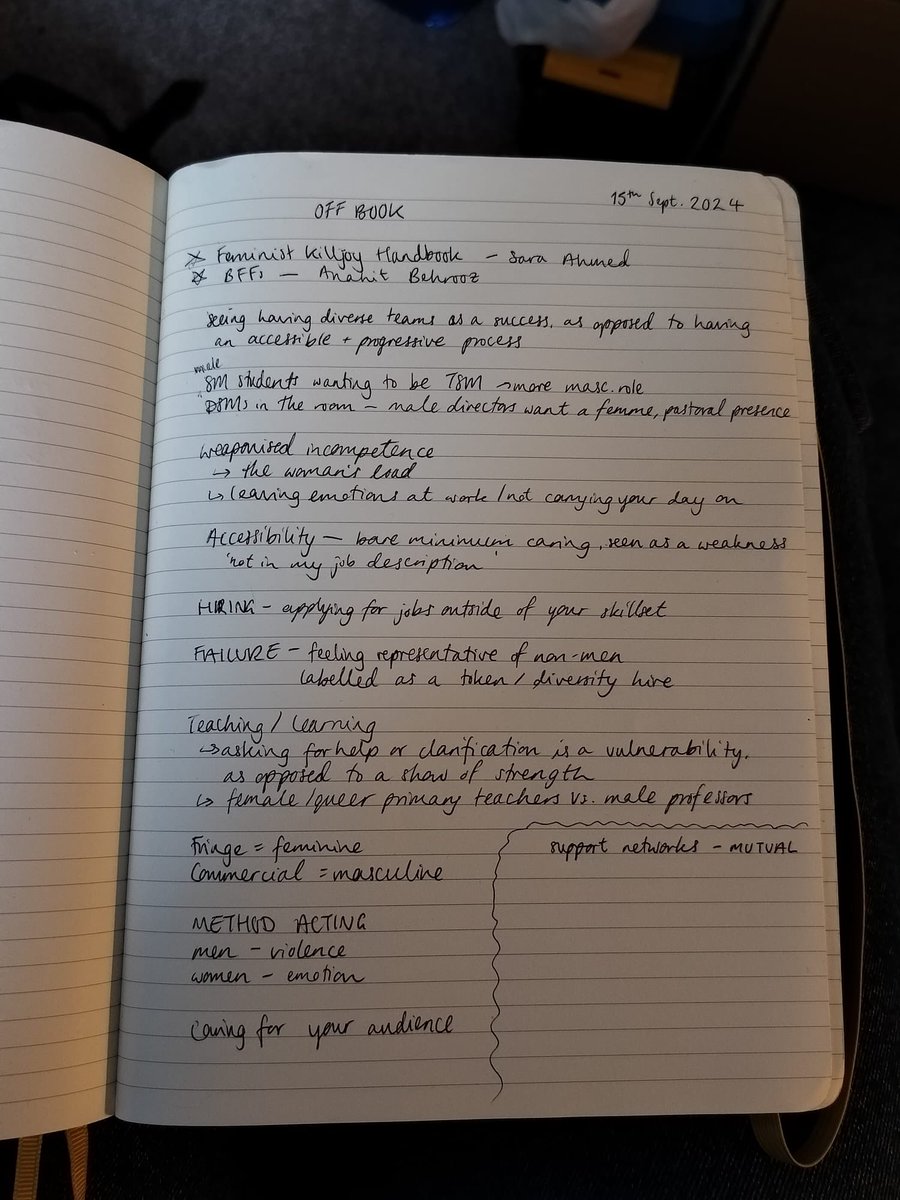 OFF BOOK
15th Sept. 2024
Feminist Killjoy Handbook - Sara Ahmed
BFFs - Anahit Behrooz
seeing having diverse teams as a success, as opposed to having
an accessible + progressive process
male
SM students wanting to be TSM → more masc. role
DSMs in the room - male directors want a femme, pastoral presence
weaponised incompetence
↳ the woman's load
↳ leaving emotions at work / not carrying your day on
Accessibility - bare minimum caring, seen as a weakness
'not in my job description'
HIRING - applying for jobs outside of your skillset
FAILURE - feeling representative of non-men
labelled as a token / diversity hire
Teaching / Learning
↳ asking for help or clarification is a vulnerability,
as opposed to a show of strength
↳ female/queer primary teachers vs. male professors
Fringe = feminine
Commercial = masculine
support networks - MUTUAL
METHOD ACTING
men - violence
women - emotion
Caring for your audience